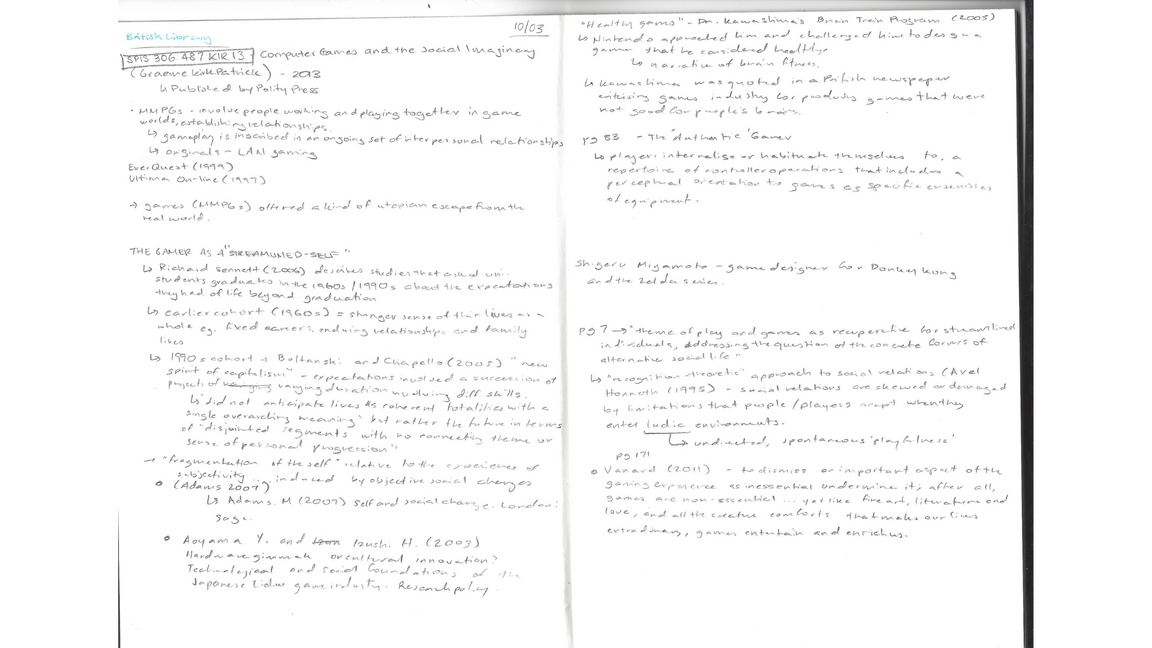 British Library
10/03
SPIS 306.487 KIR 13 Computer Games and the Social Imaginary
(Graeme Kirkpatrick) - 2013
↳ Published by Polity Press
· MMPGs - involve people working and playing together in game
worlds, establishing relationships.
↳ gameplay is inscribed in an ongoing set of interpersonal relationships
↳ originals - LAN gaming
EverQuest (1999)
Ultima On-line (1997)
→ games (MMPGs) offered a kind of utopian escape from the
real world.
THE GAMER AS A "STREAMLINED-SELF"
↳ Richard Sennett (2006) describes studies that asked uni
students graduates in the 1960s / 1990s about the expectations
they had of life beyond graduation
↳ earlier cohort (1960s) = stronger sense of their lives as a
whole eg. fixed careers, enduring relationships and family
lives
↳ 1990s cohort → Boltanski and Chiapello (2005) "new
spirit of capitalism" - expectations involved a succession of
projects of varying duration involving diff skills.
↳ "did not anticipate lives as coherent totalities with a
single overarching meaning" but rather the future in terms
of "disjointed segments with no connecting theme or
sense of personal progression"
→ "fragmentation of the self" relative to the experience of
subjectivity ... induced by objective social changes
(Adams 2007)
↳ Adams. M (2007) Self and social change. London:
Sage.
Aoyama Y. and Izushi H. (2003)
Hardware gimmick or cultural innovation?
Technological and social foundations of the
Japanese video game industry. Research policy.
"Healthy games" - Dr. Kawashima's Brain Train Program (2005)
↳ Nintendo approached him and challenged him to design a
game that be considered healthy.
↳ narrative of brain fitness.
↳ Kawashima was quoted in a British newspaper
critising games industry for produsing games that were
not good for people's brains.
pg 83 - The 'Authentic' Gamer
↳ players internalise or habituate themselves to, a
repertoire of controller operations that includes a
perceptual orientation to games as specific ensembles
of equipment.
Shigeru Miyamoto - game designer for Donkey Kong
and the Zelda series.
pg 7 → "theme of play and games as recuperative for streamlined
individuals, addressing the question of the concrete forms of
alternative social life"
↳ "recognition-theoretic" approach to social relations (Axel
Honneth (1995) - social relations are skewed or damaged
by limitations that people/players aren't when they
enter ludic environments.
↳ undirected, spontaneous 'playfulness'
pg 171
Vanard (2011) - to dismiss an important aspect of the
gaming experience as inessential undermine it; after all,
games are non-essential ... yet like fine art, literature and
love, and all the creative comforts that make our lives
extraordinary, games entertain and enrich us.